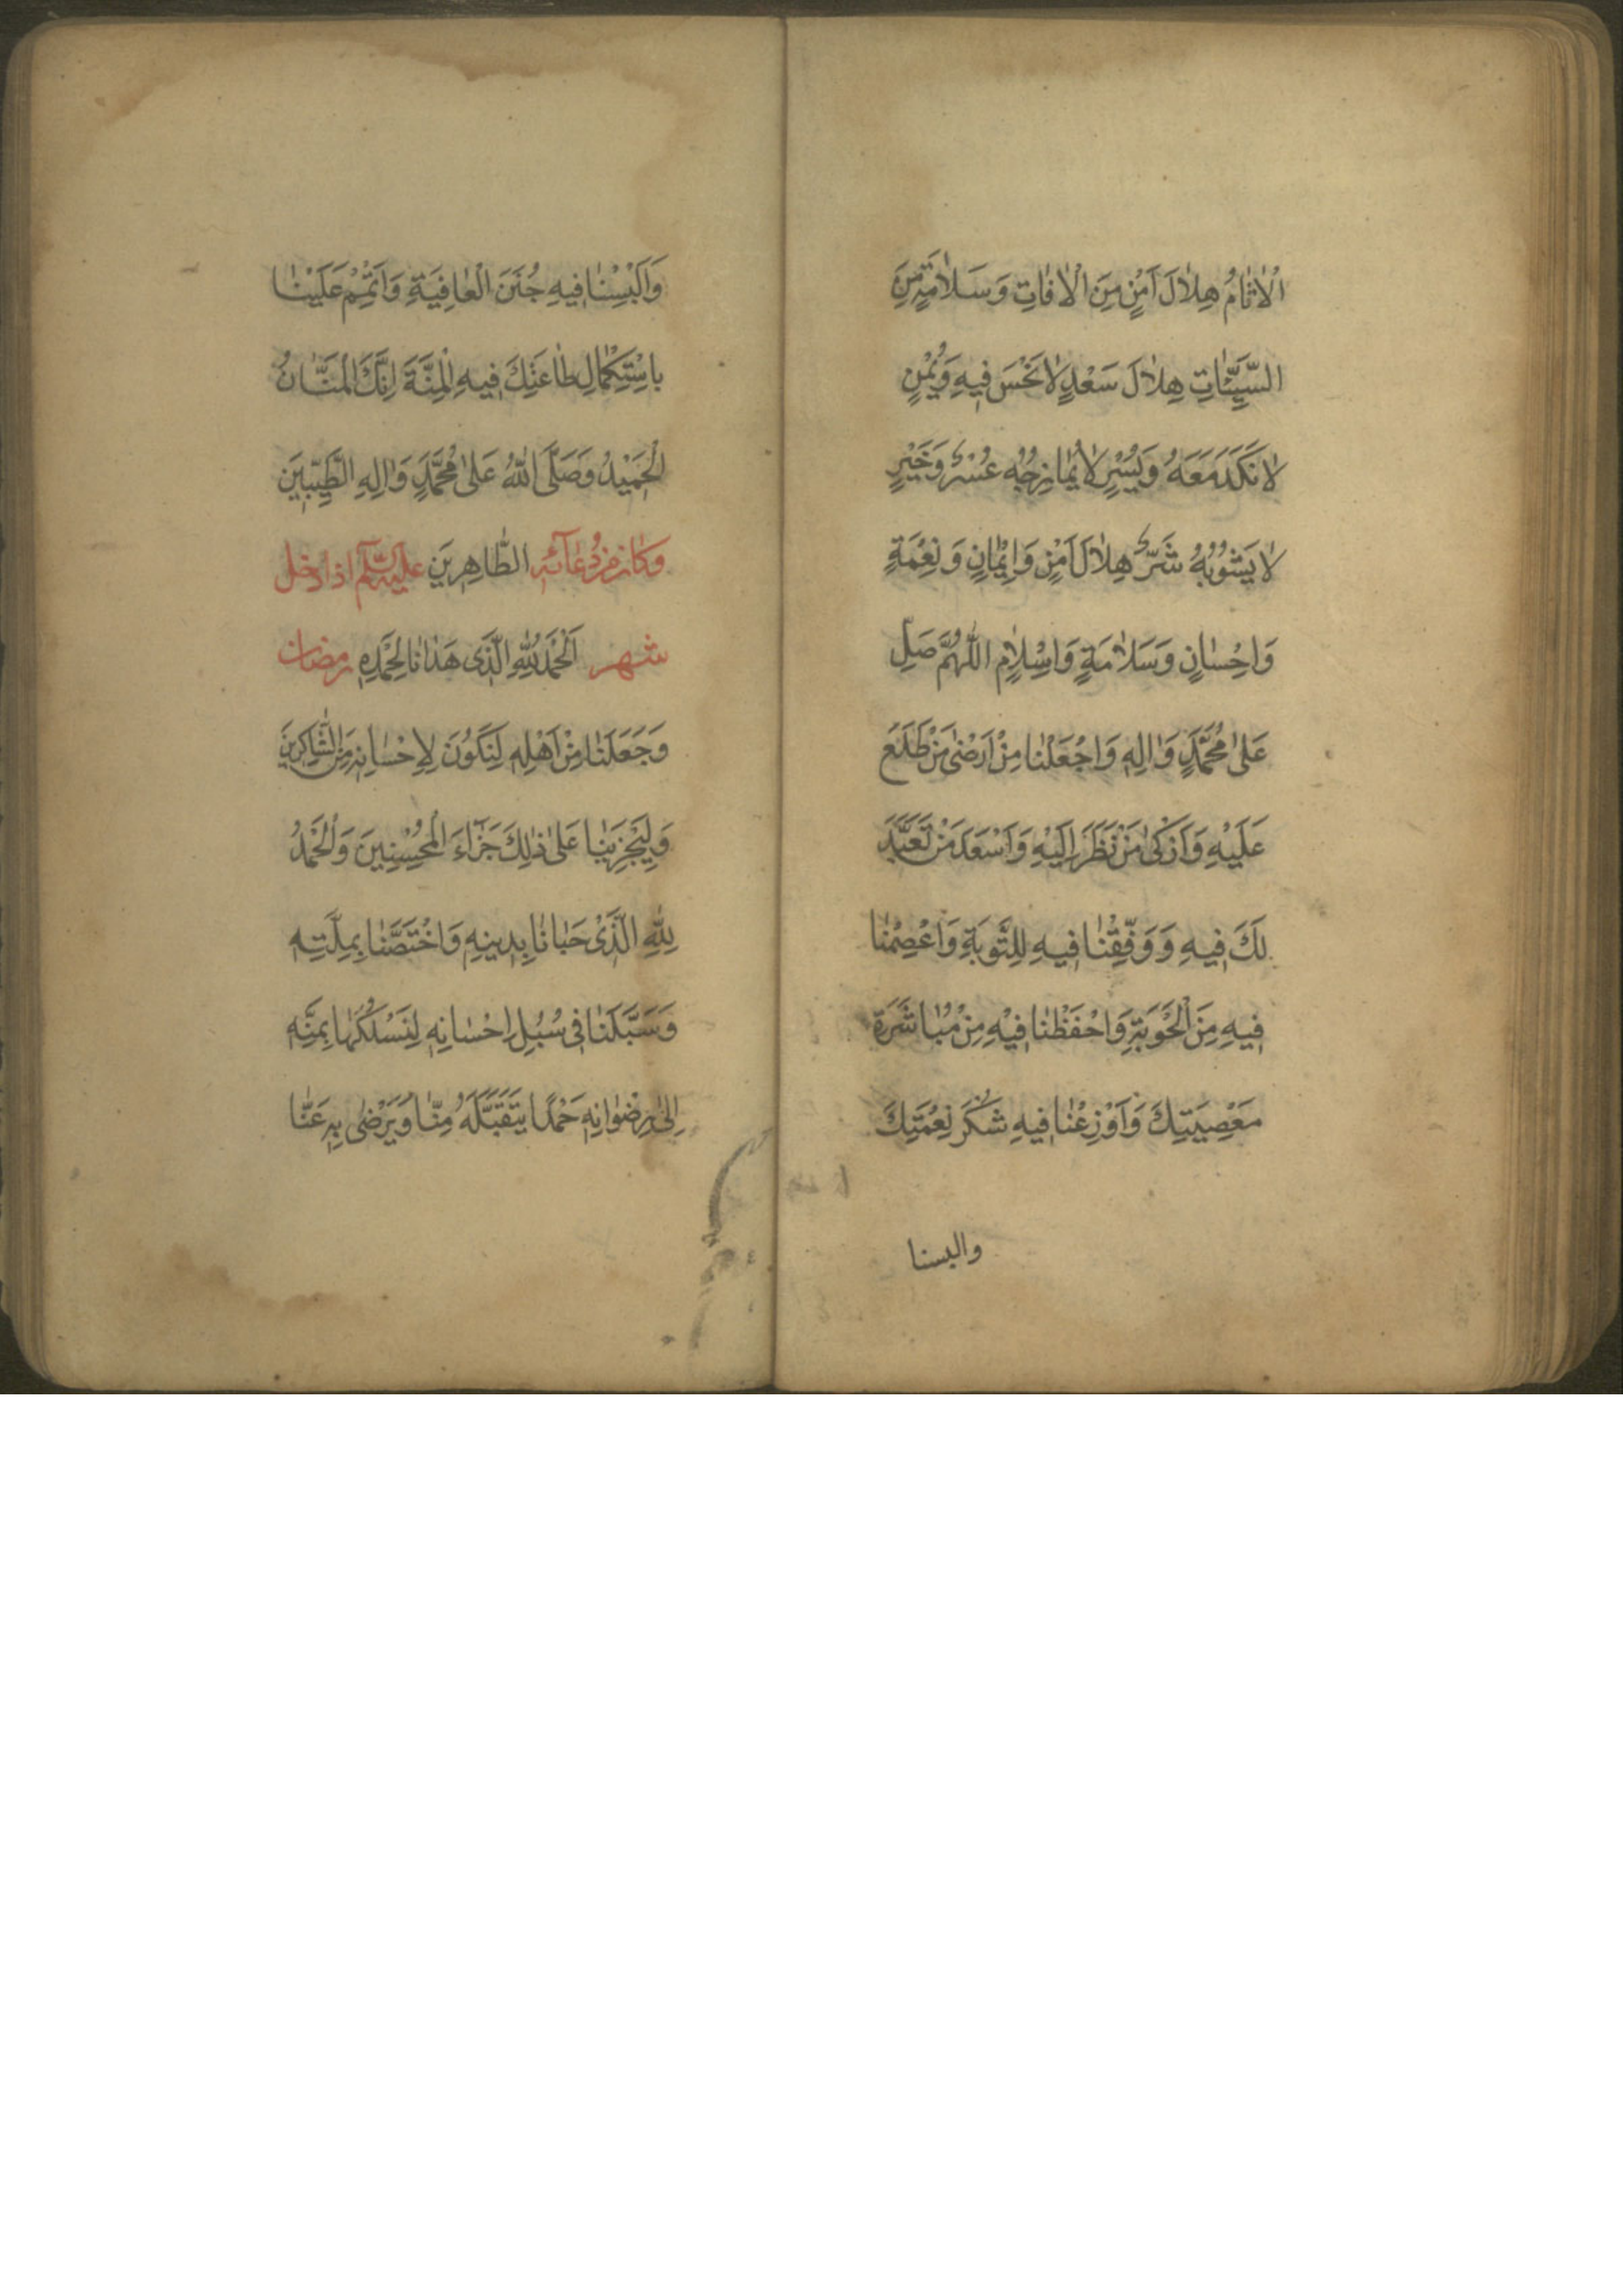 الْاٰثامُ هِلالَ اَمْنٍ مِنَ الْاٰفاتِ وَسَلامَةٍ مِنَ
السَّيِّئاتِ هِلالَ سَعْدٍ لا نَحْسَ فيهِ وَيُمْنٍ
لا نَكَدَ مَعَهُ وَيُسْرٍ لا يُمازِجُهُ عُسْرٌ وَخَيْرٍ
لا يَشُوبُهُ شَرٌّ هِلالَ اَمْنٍ وَاِيمانٍ وَنِعْمَةٍ
وَاِحْسانٍ وَسَلامَةٍ وَاِسْلامٍ اللّٰهُمَّ صَلِّ
عَلىٰ مُحَمَّدٍ وَاٰلِهِ وَاجْعَلْنا مِنْ اَرْضىٰ مَنْ طَلَعَ
عَلَيْهِ وَاَزْكىٰ مَنْ نَظَرَ اِلَيْهِ وَاَسْعَدَ مَنْ تَعَبَّدَ
لَكَ فيهِ وَوَفِّقْنا فيهِ لِلتَّوْبَةِ وَاعْصِمْنا
فيهِ مِنَ الْحَوْبَةِ وَاحْفَظْنا فيهِ مِنْ مُباشَرَةِ
مَعْصِيَتِكَ وَاَوْزِعْنا فيهِ شُكْرَ نِعْمَتِكَ
والبسنا
وَاَلْبِسْنا فيهِ جُنَنَ الْعافِيَةِ وَاَتْمِمْ عَلَيْنا
بِاسْتِكْمالِ طاعَتِكَ فيهِ الْمِنَّةَ اِنَّكَ الْمَنّانُ
الْحَميدُ وَصَلَّى اللّٰهُ عَلىٰ مُحَمَّدٍ وَاٰلِهِ الطَّيِّبينَ
وكان من دعائه الطّاهِرينَ عليه السّلم اذا دخل
شهر اَلْحَمْدُ لِلّٰهِ الَّذى هَدانا لِحَمْدِهِ رمضان
وَجَعَلَنا مِنْ اَهْلِهِ لِنَكُونَ لِاِحْسانِهِ مِنَ الشّاكِرينَ
وَلِيَجْزِيَنا عَلىٰ ذٰلِكَ جَزاءَ الْمُحْسِنينَ وَالْحَمْدُ
لِلّٰهِ الَّذى حَبانا بِدينِهِ وَاخْتَصَّنا بِمِلَّتِهِ
وَسَبَّلَنا فى سُبُلِ اِحْسانِهِ لِنَسْلُكَها بِمَنِّهِ
اِلىٰ رِضْوانِهِ حَمْدًا يَتَقَبَّلُهُ مِنّا وَيَرْضىٰ بِهِ عَنّا